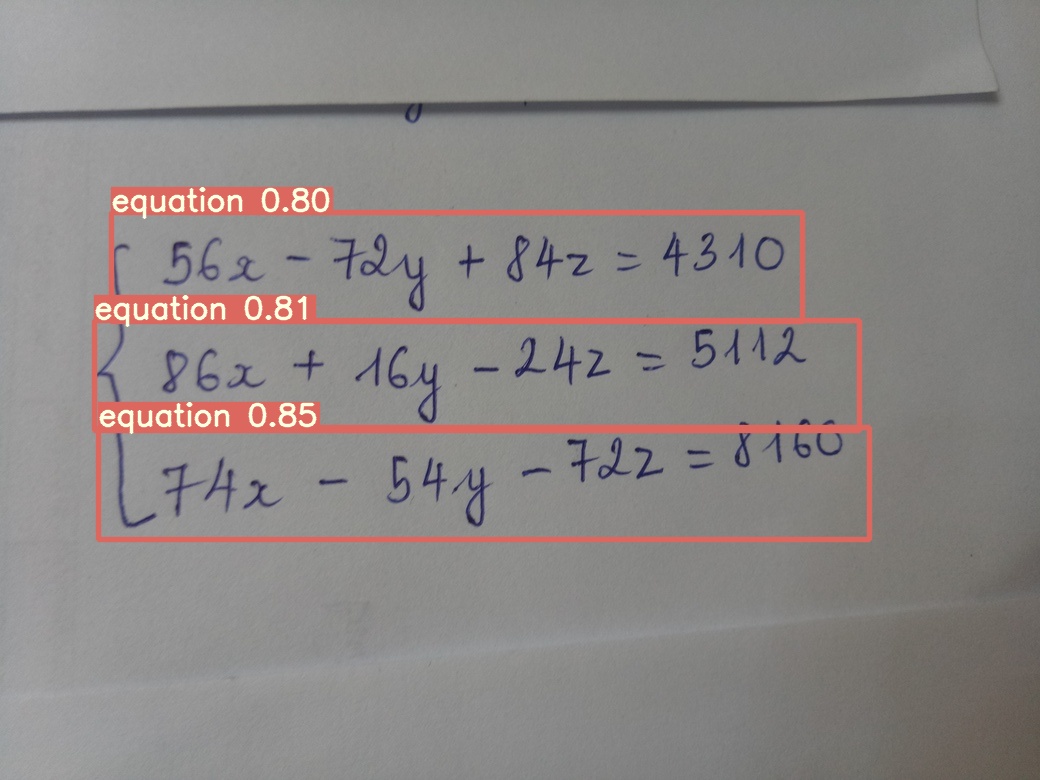 equation 0.80
56x - 72y + 84z = 4310
equation 0.81
86x + 16y - 24z = 5112
equation 0.85
74x - 54y - 72z = 8160